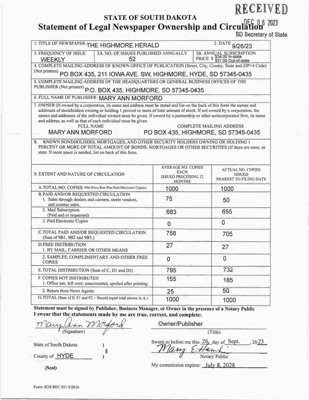 RECEIVED
DEC 08 2023
SD Secretary of State
STATE OF SOUTH DAKOTA
Statement of Legal Newspaper Ownership and Circulation
1. TITLE OF NEWSPAPER THE HIGHMORE HERALD
2. DATE 9/26/23
3. FREQUENCY OF ISSUE WEEKLY
3A. NO. OF ISSUES PUBLISHED ANNUALLY 52
3B. ANNUAL SUBSCRIPTION PRICE $
4. COMPLETE MAILING ADDRESS OF KNOWN OFFICE OF PUBLICATION (Street, City, County, State and ZIP+4 Code)
(Not printers) PO BOX 435, 211 IOWA AVE. SW, HIGHMORE, HYDE, SD 57345-0435
5. COMPLETE MAILING ADDRESS OF THE HEADQUARTERS OR GENERAL BUSINESS OFFICES OF THE
PUBLISHER (Not printers) P.O. BOX 435, HIGHMORE, SD 57345-0435
6. FULL NAME OF PUBLISHER MARY ANN MORFORD
7. OWNER (If owned by a corporation, its name and address must be stated and list on the back of this form the names and
addresses of stockholders owning or holding 1 percent or more of total amount of stock. If not owned by a corporation, the
names and addresses of the individual owners must be given. If owned by a partnership or other unincorporated firm, its name
and address, as well as that of each individual must be given.
FULL NAME COMPLETE MAILING ADDRESS
MARY ANN MORFORD PO BOX 435, HIGHMORE, SD 57345-0435
8. KNOWN BONDHOLDERS, MORTGAGES, AND OTHER SECURITY HOLDERS OWNING OR HOLDING 1
PERCENT OR MORE OF TOTAL AMOUNT OF BONDS, MORTGAGES OR OTHER SECURITIES (If there are none, so
state. If more space is needed, list on back of this form.
9. EXTENT AND NATURE OF CIRCULATION
AVERAGE NO. COPIES EACH ISSUED PRECEDING 12 MONTHS
ACTUAL NO. COPIES ISSUED NEAREST TO FILING DATE
A. TOTAL NO. COPIES (Net Press Run Plus Paid Electronic Copies) 1000 1000
B. PAID AND/OR REQUESTED CIRCULATION
1. Sales through dealers and carriers, street vendors,
and counter sales. 75 50
2. Mail Subscription
(Paid and or requested) 683 655
3. Paid Electronic Copies 0 0
C. TOTAL PAID AND/OR REQUESTED CIRCULATION
(Sum of 9B1, 9B2 and 9B3.) 758 705
D. FREE DISTRIBUTION
1. BY MAIL, CARRIER OR OTHER MEANS 27 27
2. SAMPLES, COMPLIMENTARY AND OTHER FREE
COPIES 0 0
E. TOTAL DISTRIBUTION (Sum of C, D1 and D2) 795 732
F. COPIES NOT DISTRIBUTED
1. Office use, left over, unaccounted, spoiled after printing 155 185
2. Return from News Agents 25 50
G. TOTAL (Sum of E, F1 and F2 – Should equal total shown in A.) 1000 1000
Statement must be signed by Publisher, Business Manager, or Owner in the presence of a Notary Public
I swear that the statements made by me are true, correct, and complete:
Mary Ann Morford Owner/Publisher
(Signature) (Title)
State of South Dakota )
Sworn to before me this 26 day of Sept. , 2023
County of HYDE )
Notary Public
(Seal) My commission expires: July 8, 2028
Form: SOS REC 051 9/2016